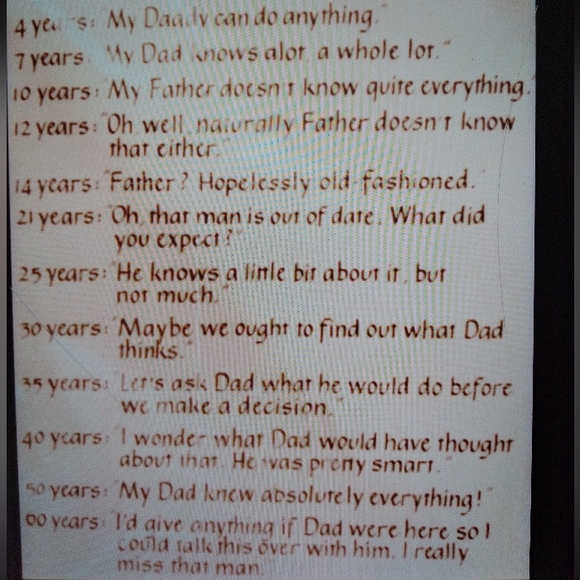 4 years: "My Daddy can do anything."
7 years: "My Dad knows alot, a whole lot."
10 years: "My Father doesn't know quite everything."
12 years: "Oh well, naturally Father doesn't know
that either."
14 years: "Father? Hopelessly old-fashioned."
21 years: "Oh, that man is out of date. What did
you expect?"
25 years: "He knows a little bit about it, but
not much."
30 years: "Maybe we ought to find out what Dad
thinks."
35 years: "Let's ask Dad what he would do before
we make a decision."
40 years: "I wonder what Dad would have thought
about that. He was pretty smart."
50 years: "My Dad knew absolutely everything!"
60 years: "I'd give anything if Dad were here so I
could talk this over with him. I really
miss that man."